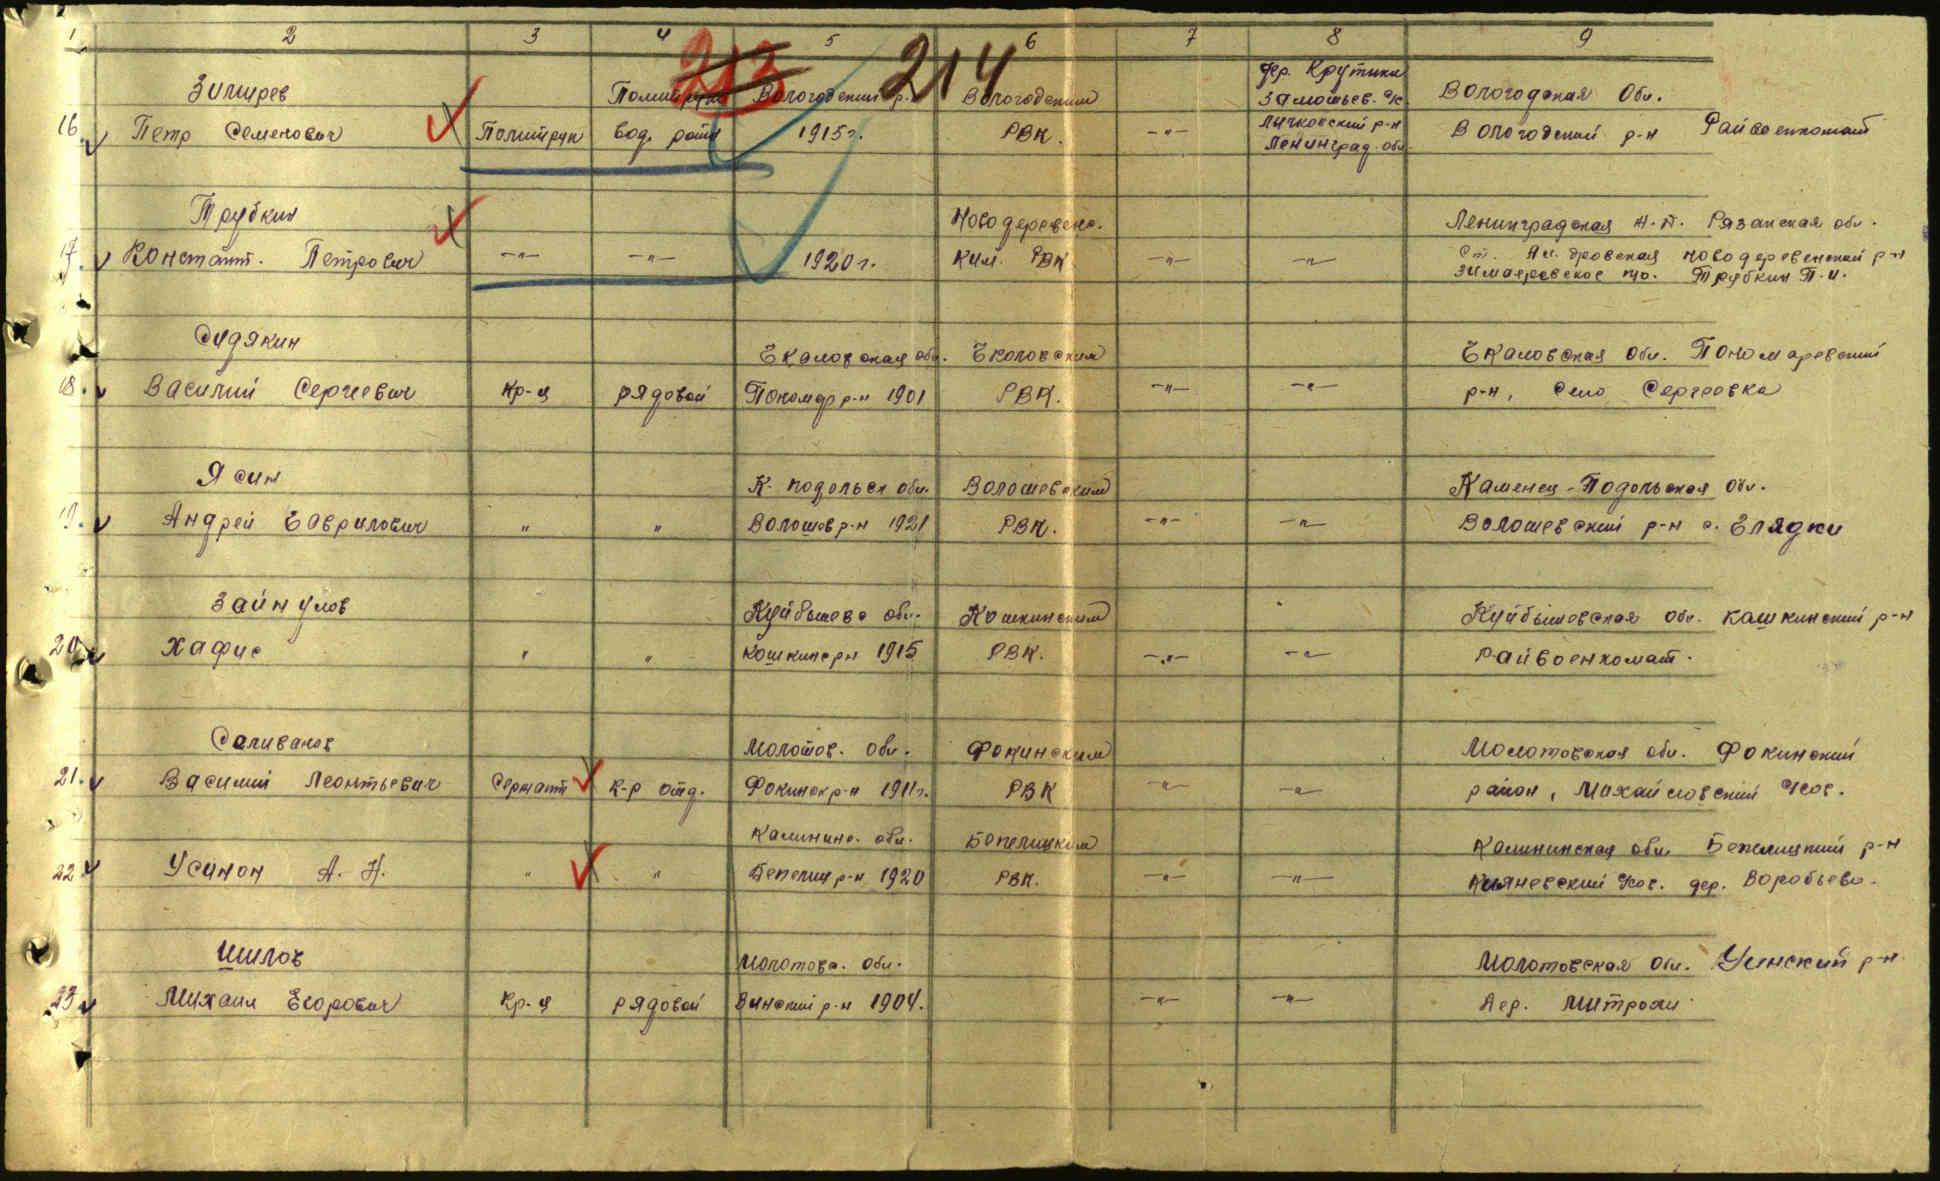 1 2 3 4 5 6 7 8 9
213 214
дер. Крутики
Зимирев Политрук Вологодский р. Вологодским Замошьев. с/с Вологодская Обл.
16. Петр Семенович Политрук вод. роты 1915г. РВК. -"- Лычковский р-н Вологодский р-н Райвоенкомат
Ленинград. обл.
Трубкин Новодеревенс. Ленинградская Рязанская обл.
17. Констант. Петрович -"- -"- 1920г. ким. РВК -"- -"- Ст. новодеревенский р-н
Зимаровское п/о. Трубкин П.И.
Сидякин Чкаловская обл. Чкаловским Чкаловская Обл. Пономаревский
18. Василий Сергеевич Кр-ц рядовой Пономар р-н 1901 РВК. -"- -"- р-н, село Сергеевка
Ясин К-подольск обл. Волошевским Каменец-Подольская обл.
19. Андрей Гаврилович " " Волошев р-н 1921 РВК. -"- -"- Волошевский р-н с. Глядки
Зайнулов Куйбышевс обл. Кошкинским Куйбышевская обл. Кошкинский р-н
20. Хафис " " Кошкинс рн 1915 РВК. -"- -"- Райвоенкомат.
Селиванов Молотов. обл. Фокинским Молотовская обл. Фокинский
21. Василий Леонтьевич Сержант К-р отд. Фокинск р-н 1911г. РВК -"- -"- район, Михайловский с/сов.
Калининс. обл. Бепелицким Калининская обл. Бепелицкий р-н
22. Усанон А. Н. " " Бепелиц р-н 1920 РВК. -"- -"- с/сов. дер. Воробьево.
Шилов Молотовс. Обл. Молотовская обл. Уинский р-н
23. Михаил Егорович Кр-ц рядовой Уинский р-н 1904. -"- -"- Дер. Митрохи